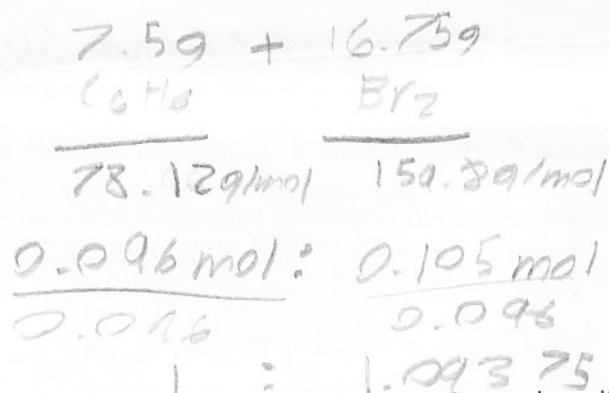 7.5g + 16.75g
C6H6 Br2
78.12g/mol 159.8g/mol
0.096mol : 0.105mol
0.096 0.096
1 : 1.09375